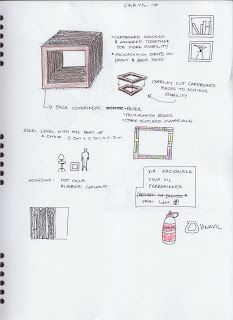 VINAVIL →
• CARDBOARD STACKED
& ADHERED TOGETHER
FOR MORE STABILITY
• PACKAGING STRIPS ON
FRONT & BACK FACES
OVERLAY CUT CARDBOARD
PIECES TO ACHIEVE
STABILITY
→ FACE COVERINGS: PAPER
• PACKAGING BOXES
• OTHER COLORED MATERIALS
SIZE: LEVEL WITH THE SEAT OF
A CHAIR 0.5m x 0.5m x 0.5m
ADHESIVE: HOT GLUE
RUBBER CEMENT
VIA NAZIONALE
VINA VIL
FERRAMENTA
FROM
VINAVIL